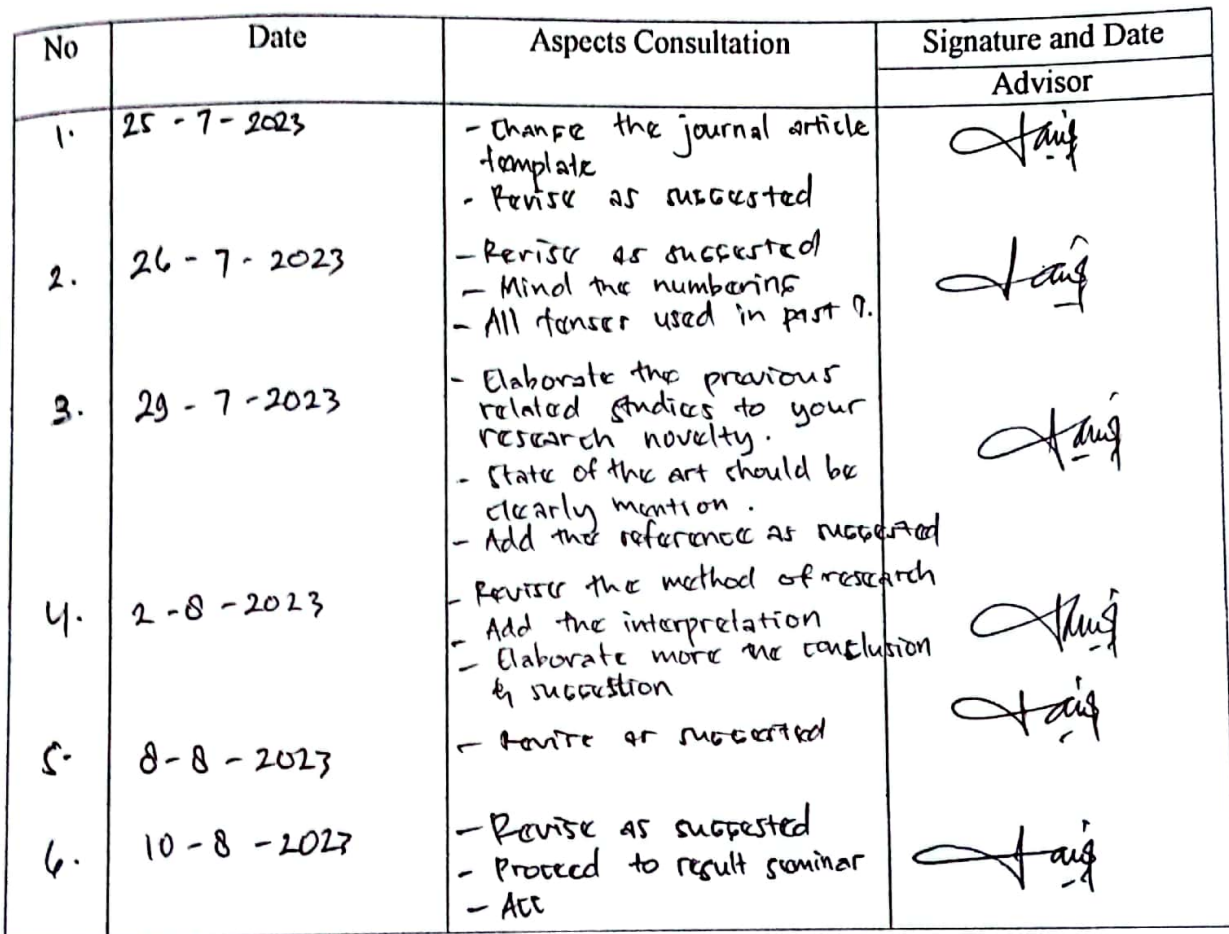 No Date Aspects Consultation Signature and Date
Advisor
1. 25 - 7 - 2023 - Change the journal article
template
- Revise as suggested
2. 26 - 7 - 2023 - Revise as suggested
- Mind the numbering
- All tenses used in past
3. 29 - 7 - 2023 - Elaborate the previous
related studies to your
research novelty.
- State of the art should be
clearly mention.
- Add the reference as suggested
4. 2 - 8 - 2023 - Revise the method of research
- Add the interpretation
- Elaborate more the conclusion
& suggestion
5. 8 - 8 - 2023 - Revise as suggested
6. 10 - 8 - 2023 - Revise as suggested
- Proceed to result seminar
- Acc